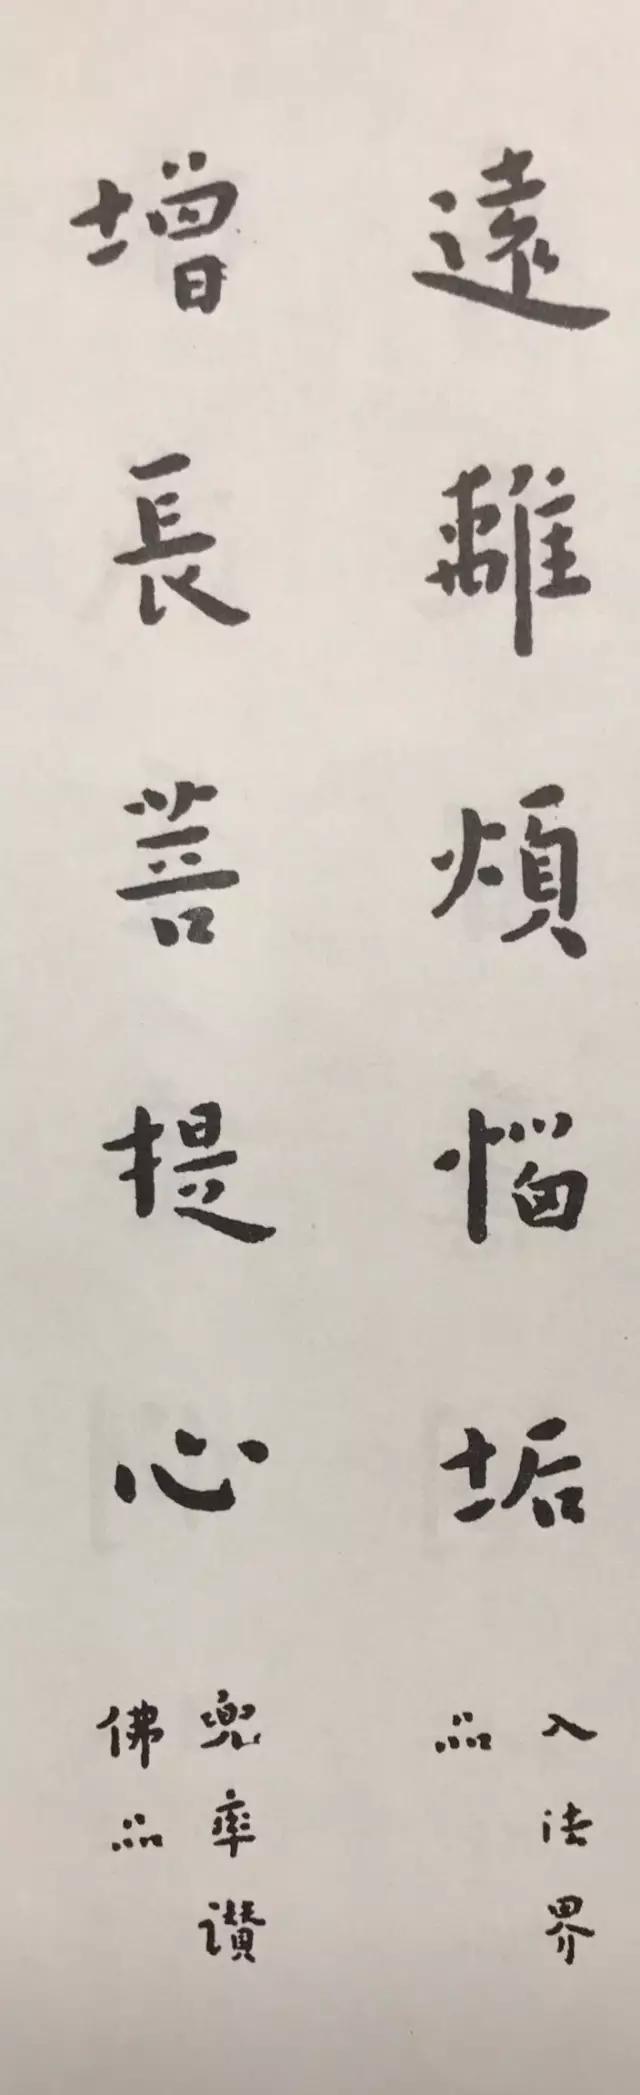 遠離煩惱垢
入法界
品
增長菩提心
兜率讃
佛品